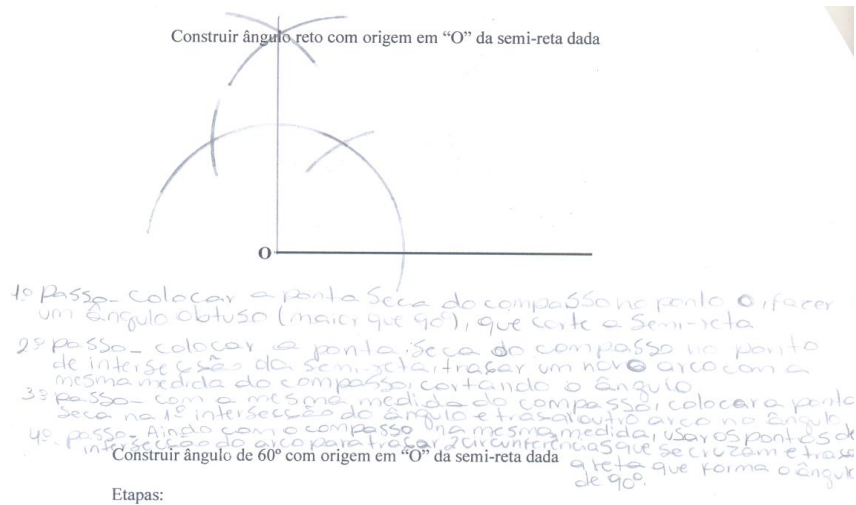 Construir ângulo reto com origem em “O” da semi-reta dada
O
1º Passo - colocar a ponta seca do compasso no ponto O, fazer
um ângulo obtuso (maior que 90º), que corte a semi-reta
2º passo - colocar a ponta seca do compasso no ponto
de intersecção da semi-reta, traçar um novo arco com a
mesma medida do compasso, cortando o ângulo.
3º passo - com a mesma medida do compasso, colocar a ponta
seca na 1ª intersecção do ângulo e trasar outro arco no ângulo
4º passo - Aindo com o compasso na mesma medida, usar os pontos de
intersecção do arco para traçar 2 circunferências que se cruzam e trasa
a reta que forma o ângulo
de 90º.
Construir ângulo de 60º com origem em “O” da semi-reta dada
Etapas: